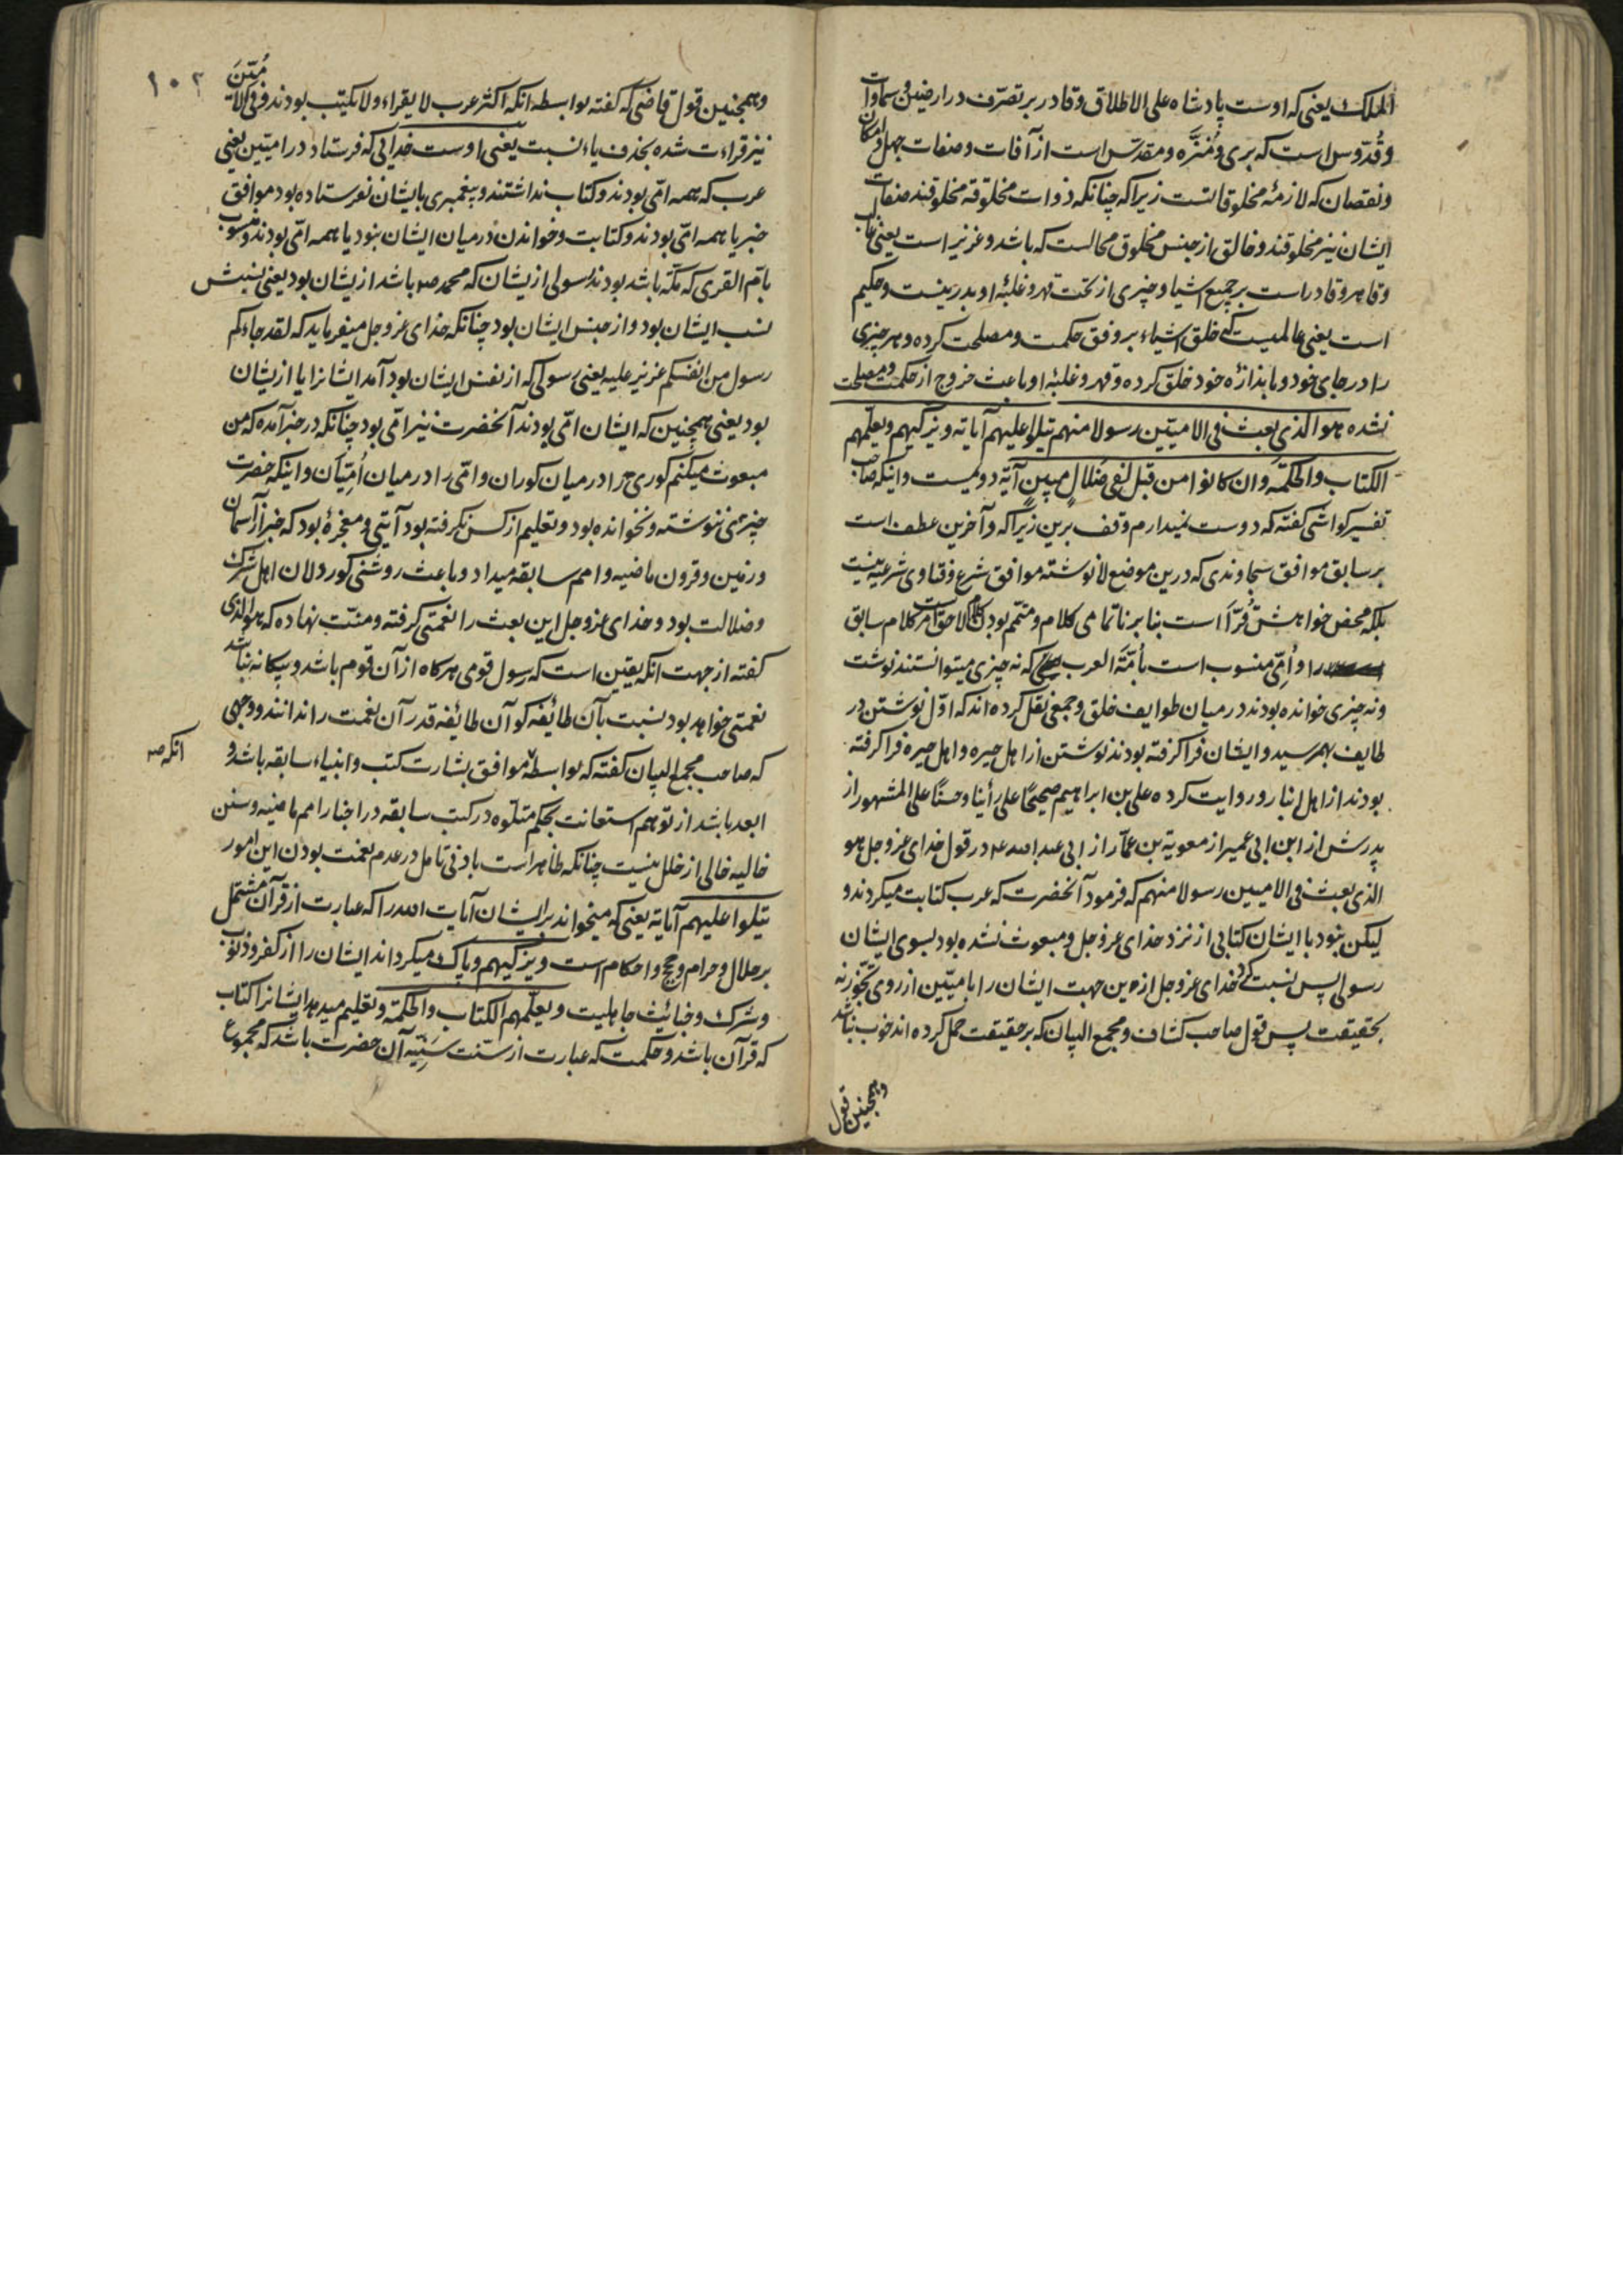 الملک یعنی که اوست پادشاه علی الاطلاق و قادر بر تصرف در ارضین و سماوات
و قُدّوس است که بری و مُنزَّه و مقدّس است از آفات و صفات جهل و امکان
و نقصان که لازمهٔ مخلوقاتست زیرا که چنانکه ذوات مخلوقه مخلوقند صفات
ایشان نیز مخلوقند و خالق از جنس مخلوق محالست که باشد و عزیز است یعنی غالب
و قاهر و قادر است بر جمیع اشیا و چیزی از تحت قهر و غلبهٔ او بدر نیست و حکیم
است یعنی عالمیست که خلق اشیاء بر وفق حکمت و مصلحت کرده و هر چیزی
را در جای خود و باندازهٔ خود خلق کرده و قهر و غلبهٔ او باعث خروج از حکمت و مصلحت
نشده هو الذی بعث فی الامیّین رسولا منهم یتلوا علیهم آیاته و یزکیهم و یعلّمهم
الکتاب و الحکمة و ان کانوا من قبل لفی ضلالٍ مبینٍ آیهٔ دویمست و اینکه صاحب
تفسیر کواشی کفته که دوست نمیدارم وقف برین زیرا که و آخرین عطف است
بر سابق موافق سجاوندی که درین موضع لا نوشته موافق شرع و فتاوی شرعیه نیست
بلکه محض خواهش قُرّا است بنا بر ناتمامی کلام و متمّم بودن کلام لاحق است مر کلام سابق
را و اُمّی منسوب است بأمّة العرب که نه چیزی میتوانستند نوشت
و نه چیزی خوانده بودند در میان طوایف خلق و جمعی نقل کرده اند که اوّل نوشتن در
طایف بهم رسید و ایشان فرا کرفته بودند نوشتن از اهل حیره و اهل حیره فرا کرفته
بودند از اهل انبار و روایت کرده علی بن ابراهیم صحیحًا علی رأینا و حسنًا علی المشهور از
پدرش از ابن ابی عمیر از معویة بن عمّار از ابی عبدالله ع در قول خدای عزوجل هو
الذی بعث فی الامیین رسولا منهم که فرمود آنحضرت که عرب کتابت میکردند و
لیکن نبود با ایشان کتابی از نزد خدای عزوجل و مبعوث نشده بود بسوی ایشان
رسولی پس نسبت کرد خدای عزوجل ازین جهت ایشان را بامیّین از روی تجوّز نه
بحقیقت پس قول صاحب کشاف و مجمع البیان که بر حقیقت حمل کرده اند خوب نباشد
و همچنین قول
۱۰۲
و همچنین قول قاضی که کفته بواسطه انکه اکثر عرب لا یقراء و لا یکتب بودند و فی الامّین
نیز قراءت شده بحذف یاء نسبت یعنی اوست خدائی که فرستاد در امیّین یعنی
عرب که همه امّی بودند و کتاب نداشتند و پیغمبری بایشان نفرستاده بود موافق
خبر یا همه امّی بودند و کتابت و خواندن در میان ایشان نبود یا همه امّی بودند و منسوب
بامّ القری که مکّه باشد بودند رسولی ازیشان که محمد ص باشد ازیشان بود یعنی نسبش
نسب ایشان بود و از جنس ایشان بود چنانکه خدای عزوجل میفرماید که لقد جاءکم
رسول من انفسکم عزیز علیه یعنی رسولی که از نفس ایشان بود آمد ایشانرا یا ازیشان
بود یعنی همچنین که ایشان امّی بودند آنحضرت نیز امّی بود چنانکه در خبر آمده که من
مبعوث میکنم کوری را در میان کوران و امّی را در میان اُمّیان و اینکه حضرت
چیزی ننوشته و نخوانده بود و تعلیم از کسی نکرفته بود آیتی و معجزهٔ بود که خبر از آسمان
و زمین و قرون ماضیه و امم سابقه میداد و باعث روشنی کور دلان اهل شرک
و ضلالت بود و خدای عزوجل این بعث را نعمتی کرفته و منّت نهاده که هو الذی
کفته از جهت انکه یقین است که رسول قومی هرکاه از آن قوم باشد و بیکانه نباشد
نعمتی خواهد بود نسبت بآن طائفه کو آن طائفه قدر آن نعمت را ندانند و وجهی
که صاحب مجمع البیان کفته که بواسطه موافق بشارت کتب و انبیاء سابقه باشد و
انکه ص
ابعد باشد از توهم استعانت بحکم متلوّه در کتب سابقه در اخبار امم ماضیه و سنن
خالیه خالی از خلل نیست چنانکه ظاهر است بادنی تامل در عدم نعمت بودن این امور
یتلوا علیهم آیاته یعنی که میخواند بر ایشان آیات الله را که عبارت از قرآن مشتمل
بر حلال و حرام و حج و احکام است و یزکیهم و پاک میکرداند ایشان را از کفر و ذنوب
و شرک و خبائث جاهلیت و یعلّمهم الکتاب و الحکمة و تعلیم میدهد ایشانرا کتاب
که قرآن باشد و حکمت که عبارت از سنّت سَنِیّه آن حضرت باشد که مجموع